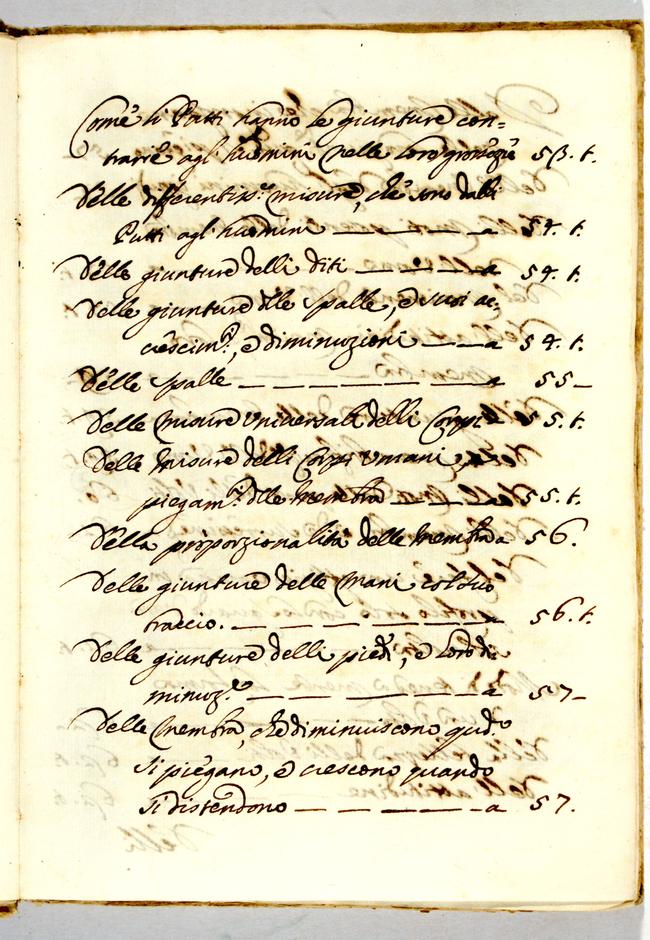 Come li Putti hanno le giunture con=
trarie agl'huomini nelle loro grossezze 53. t.
Delle differentiss.e misure, che sono dalli
Putti agl'huomini — — — a 54. t.
Delle giunture delli diti — — — a 54. t.
Delle giunture dlle spalle, e suoi ac-
crescim.ti, e diminuzioni — — a 54. t.
Delle spalle — — — — — — — a 55 —
Delle misure universali delli Corpi a 55. t.
Delle misure delli Corpi umani, e
piegam.ti dlle membra — — — a 55. t.
Della proporzionalità delle membra a 56.
Delle giunture delle mani col suo
braccio. — — — — — — — 56. t.
Delle giunture delli piedi, e loro di
minuz.e — — — — — — — a 57 —
Delle membra, che diminuiscono qud.o
si piegano, e crescono quando
si distendono — — — — — — a 57.
Delli